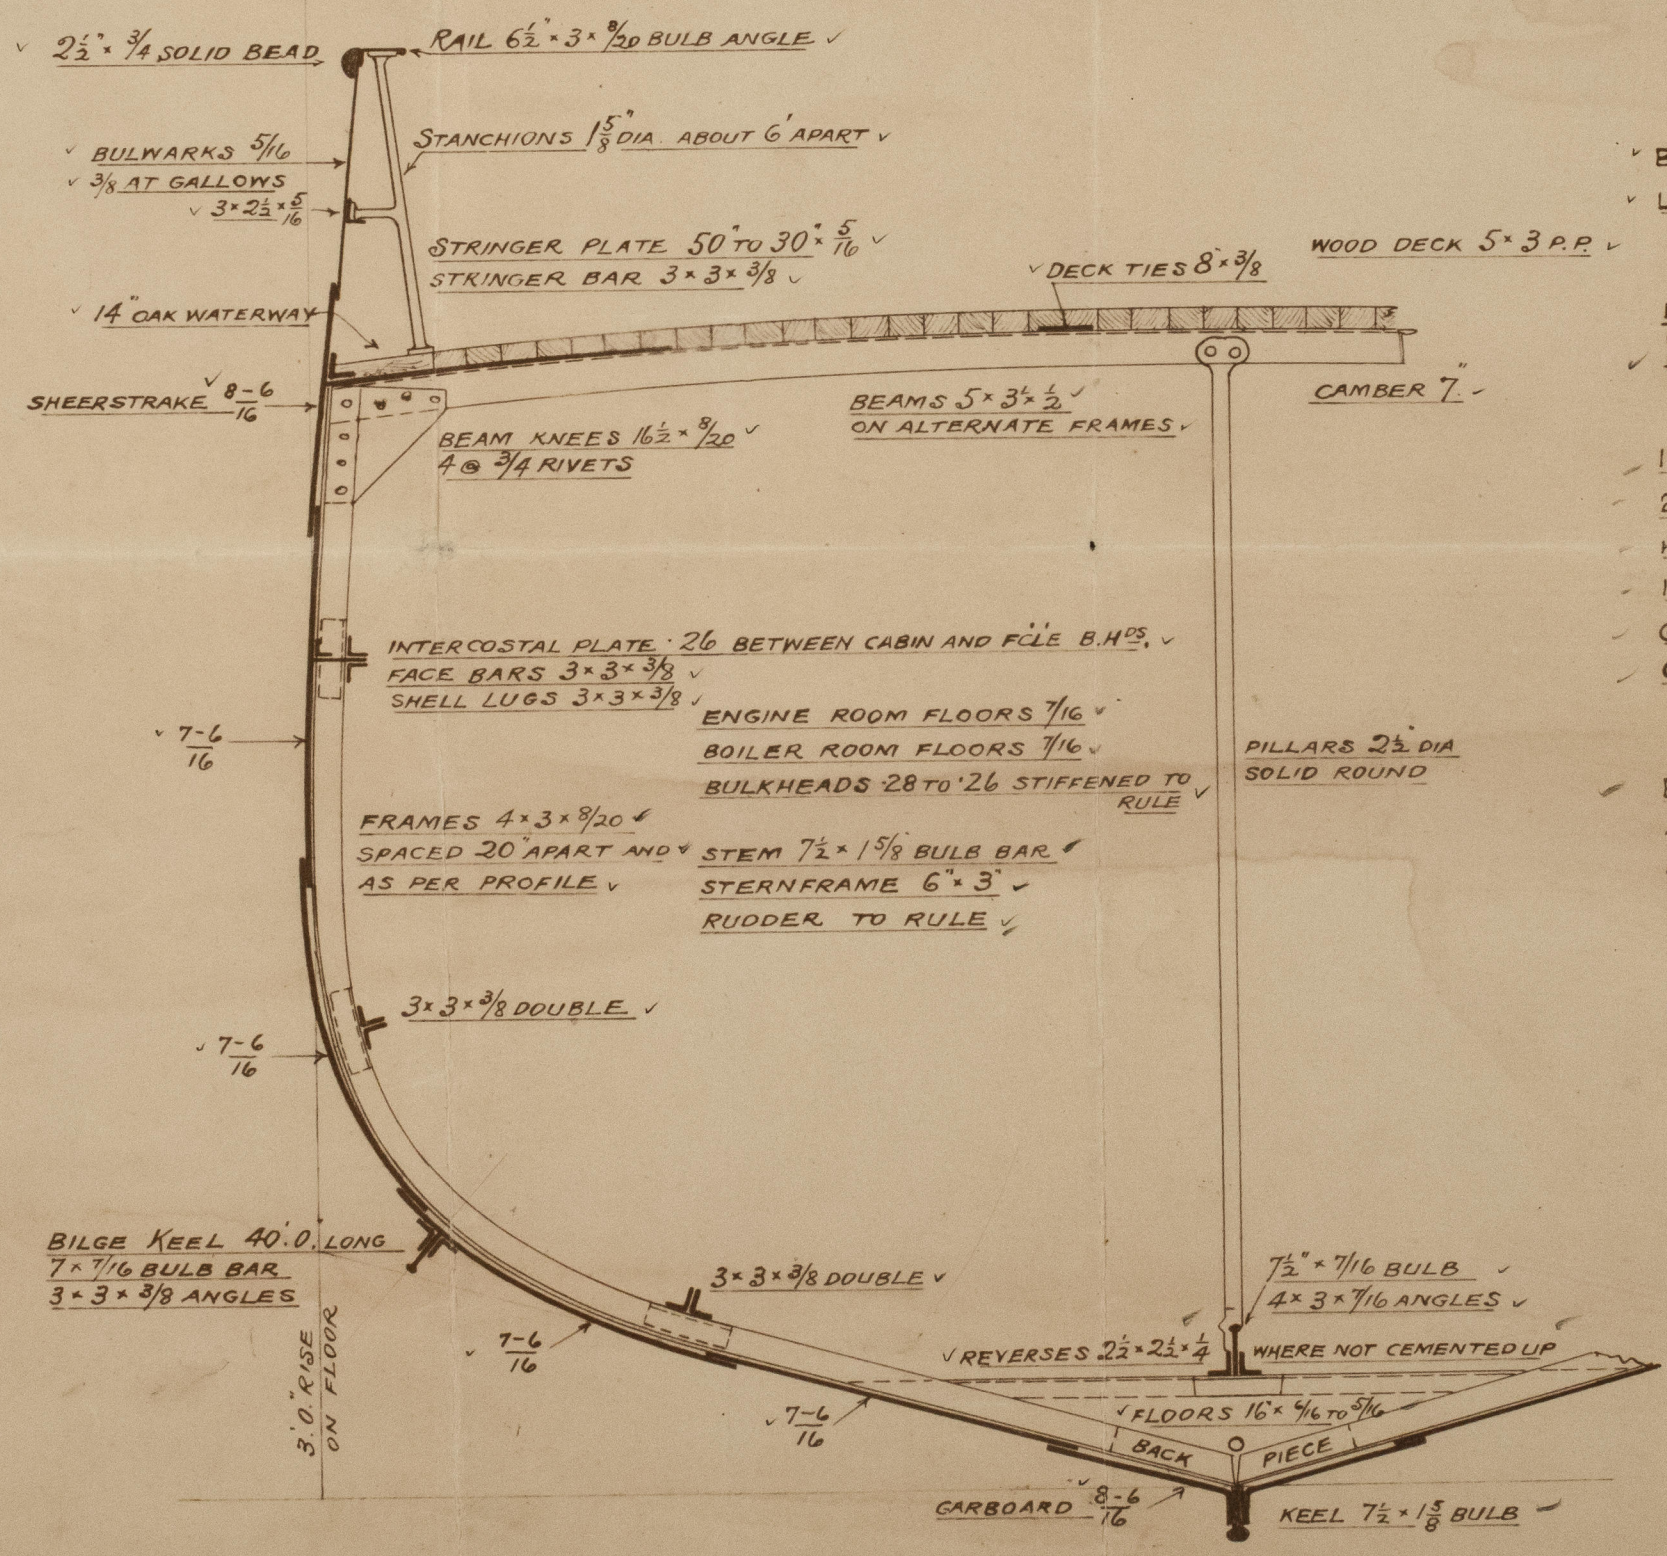 2½" × ¾ SOLID BEAD
RAIL 6½" × 3 × 8/20 BULB ANGLE
BULWARKS 5/16
3/8 AT GALLOWS
3 × 2½ × 5/16
STANCHIONS 1⅝" DIA. ABOUT 6' APART
STRINGER PLATE 50" TO 30" × 5/16
STRINGER BAR 3 × 3 × 3/8
DECK TIES 8" × 3/8
WOOD DECK 5 × 3 P.P.
14" OAK WATERWAY
SHEERSTRAKE 8-6/16
BEAM KNEES 16½ × 8/20
4 @ ¾ RIVETS
BEAMS 5 × 3½ × ½
ON ALTERNATE FRAMES
CAMBER 7"
INTERCOSTAL PLATE ·26 BETWEEN CABIN AND FCLE B.HDS.
FACE BARS 3 × 3 × 3/8
SHELL LUGS 3 × 3 × 3/8
7-6/16
ENGINE ROOM FLOORS 7/16
BOILER ROOM FLOORS 7/16
BULKHEADS ·28 TO ·26 STIFFENED TO
RULE
PILLARS 2½" DIA
SOLID ROUND
FRAMES 4 × 3 × 8/20
SPACED 20" APART AND
AS PER PROFILE
STEM 7½ × 1 5/8 BULB BAR
STERNFRAME 6" × 3"
RUDDER TO RULE
3 × 3 × 3/8 DOUBLE
7-6/16
BILGE KEEL 40'.0" LONG
7 × 7/16 BULB BAR
3 × 3 × 3/8 ANGLES
3'.0" RISE
ON FLOOR
3 × 3 × 3/8 DOUBLE
7-6/16
7½" × 7/16 BULB
4 × 3 × 7/16 ANGLES
REVERSES 2½ × 2½ × ¼ WHERE NOT CEMENTED UP
7-6/16
FLOORS 16" × 6/16 TO 5/16
BACK PIECE
GARBOARD 8-6/16
KEEL 7½ × 1⅝ BULB